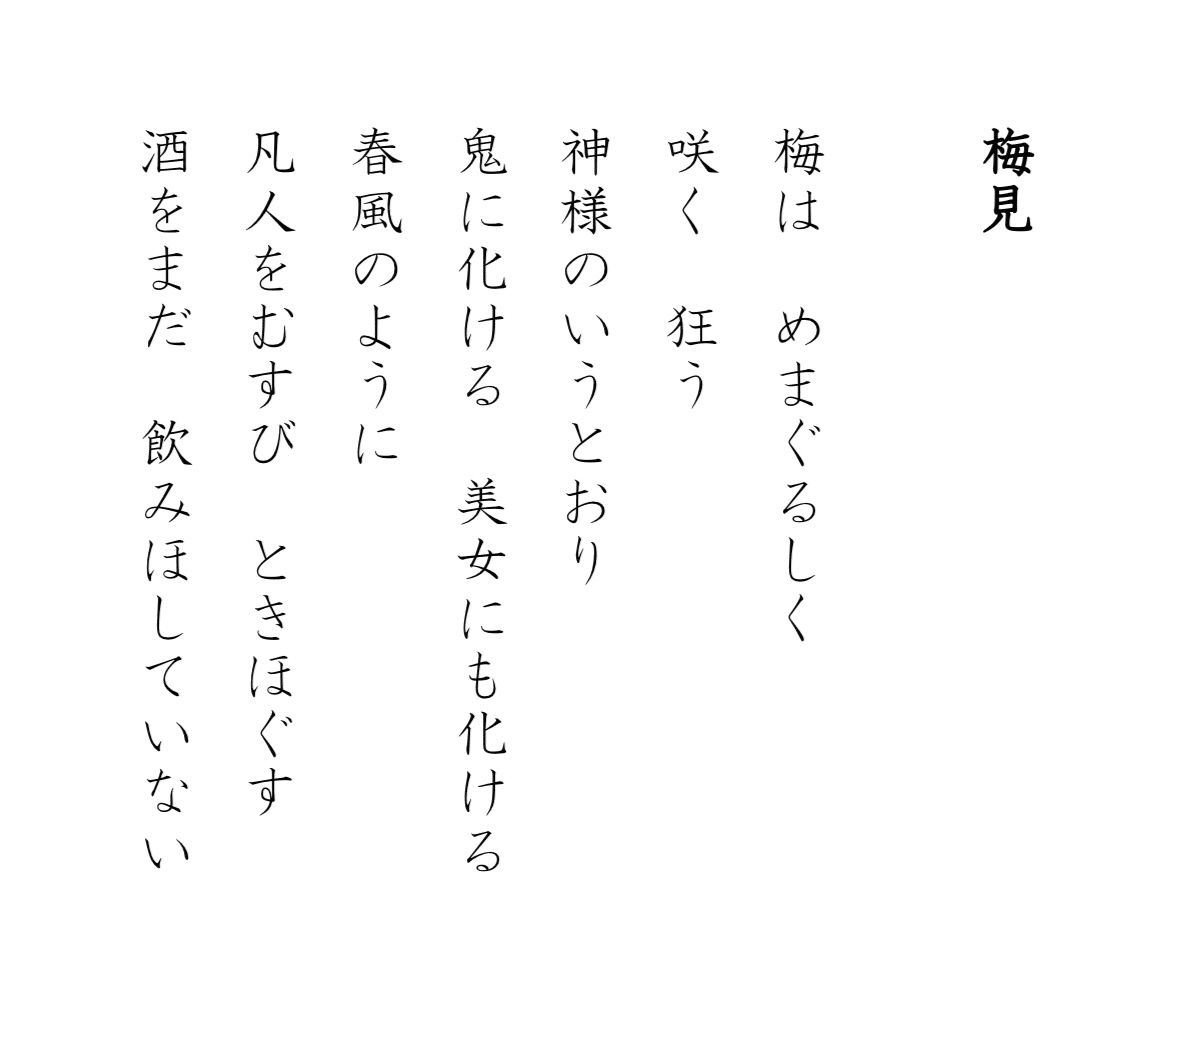 梅見
梅は　めまぐるしく
咲く　狂う
神様のいうとおり
鬼に化ける　美女にも化ける
春風のように
凡人をむすび　ときほぐす
酒をまだ　飲みほしていない